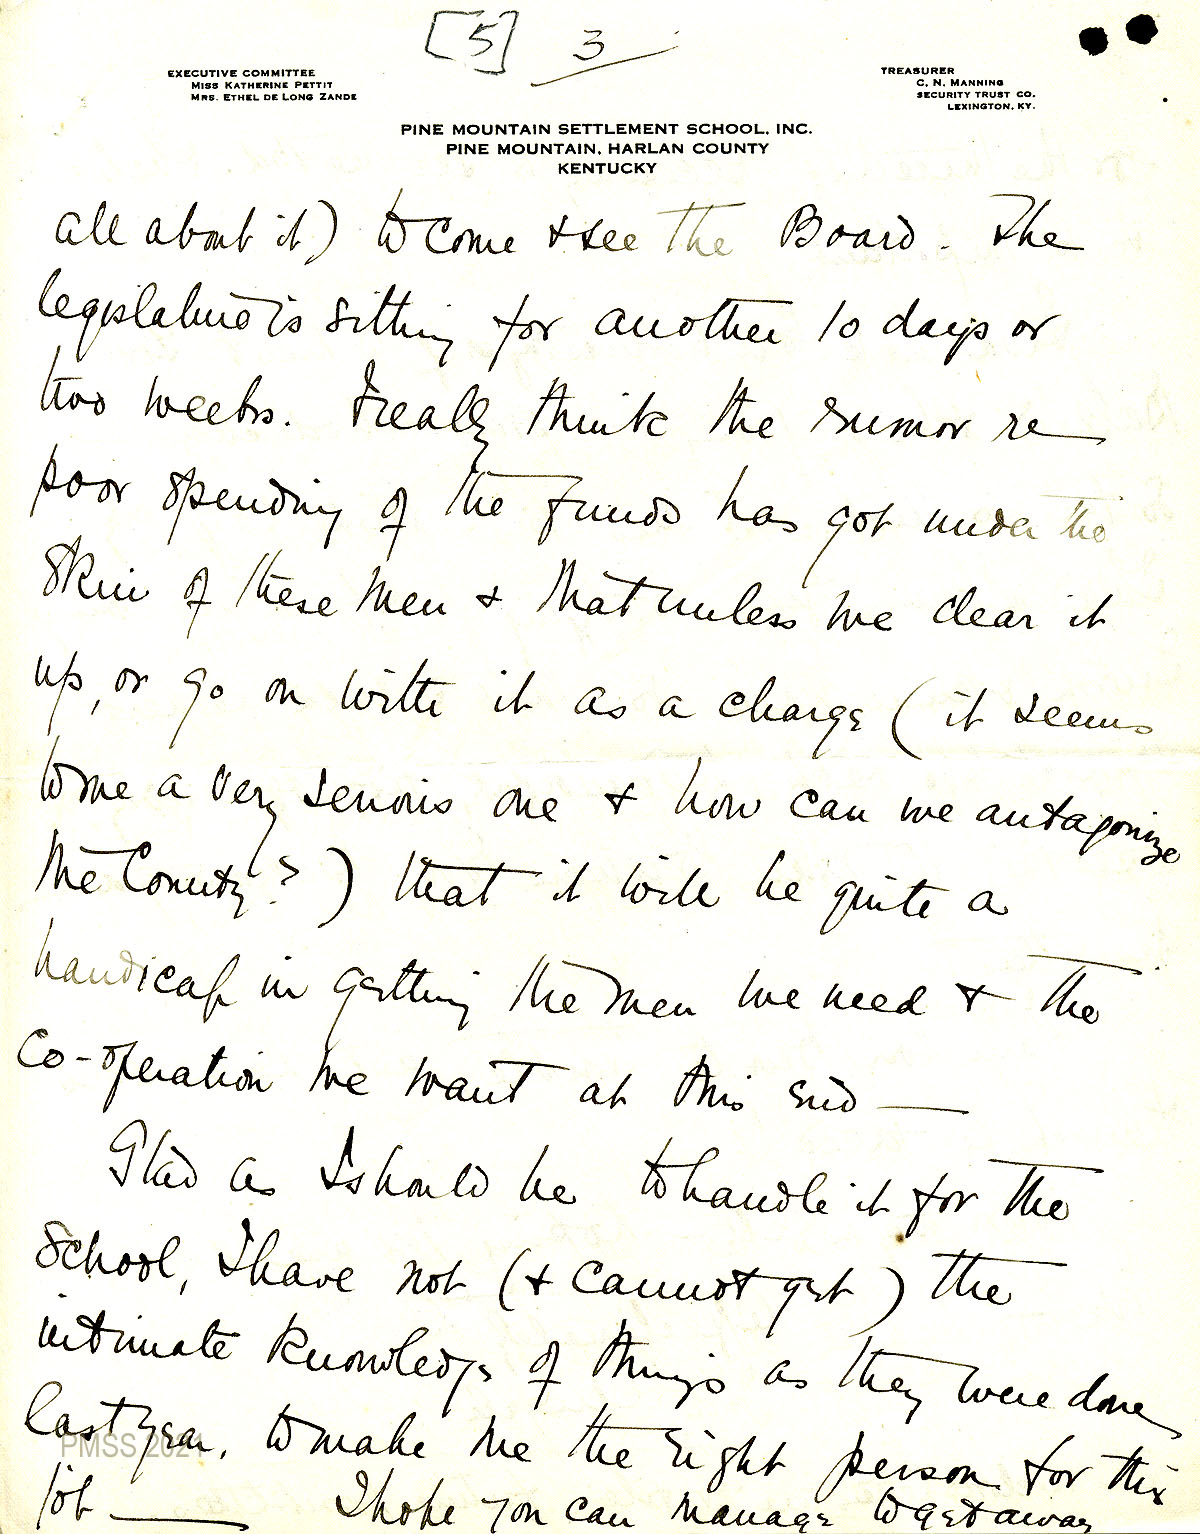 [5] 3
EXECUTIVE COMMITTEE
MISS KATHERINE PETTIT
MRS. ETHEL DE LONG ZANDE
TREASURER
C. N. MANNING
SECURITY TRUST CO.
LEXINGTON, KY.
PINE MOUNTAIN SETTLEMENT SCHOOL, INC.
PINE MOUNTAIN, HARLAN COUNTY
KENTUCKY
all about it) to come & see the Board. The
legislature is sitting for another 10 days or
two weeks. I really think the rumor re
poor spending of the funds has got under the
skin of these men & that unless we clear it
up, or go on with it as a charge (it seems
to me a very serious one & how can we antagonize
the County?) that it will be quite a
handicap in getting the men we need & the
co-operation we want at this end —
Glad as I should be to handle it for the
school, I have not (& cannot get) the
intimate knowledge of things as they were done
last year, to make me the right person for this
job — I hope you can manage to get away
PMSS 2021